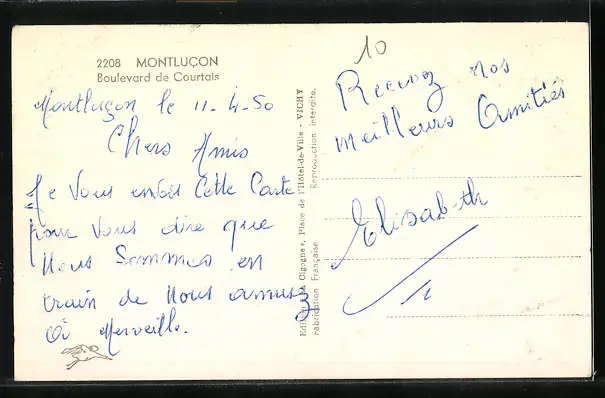 2208 MONTLUÇON
Boulevard de Courtais
Montluçon le 11-4-50
Chers Amis
Je vous envois cette carte
pour vous dire que
nous sommes en
train de nous amusez
à merveille.
Editions "La Cigogne", Place de l'Hôtel-de-Ville - VICHY
Fabrication Française Reproduction interdite.
10
Recevez nos
meilleurs Amitiés
Elisabeth